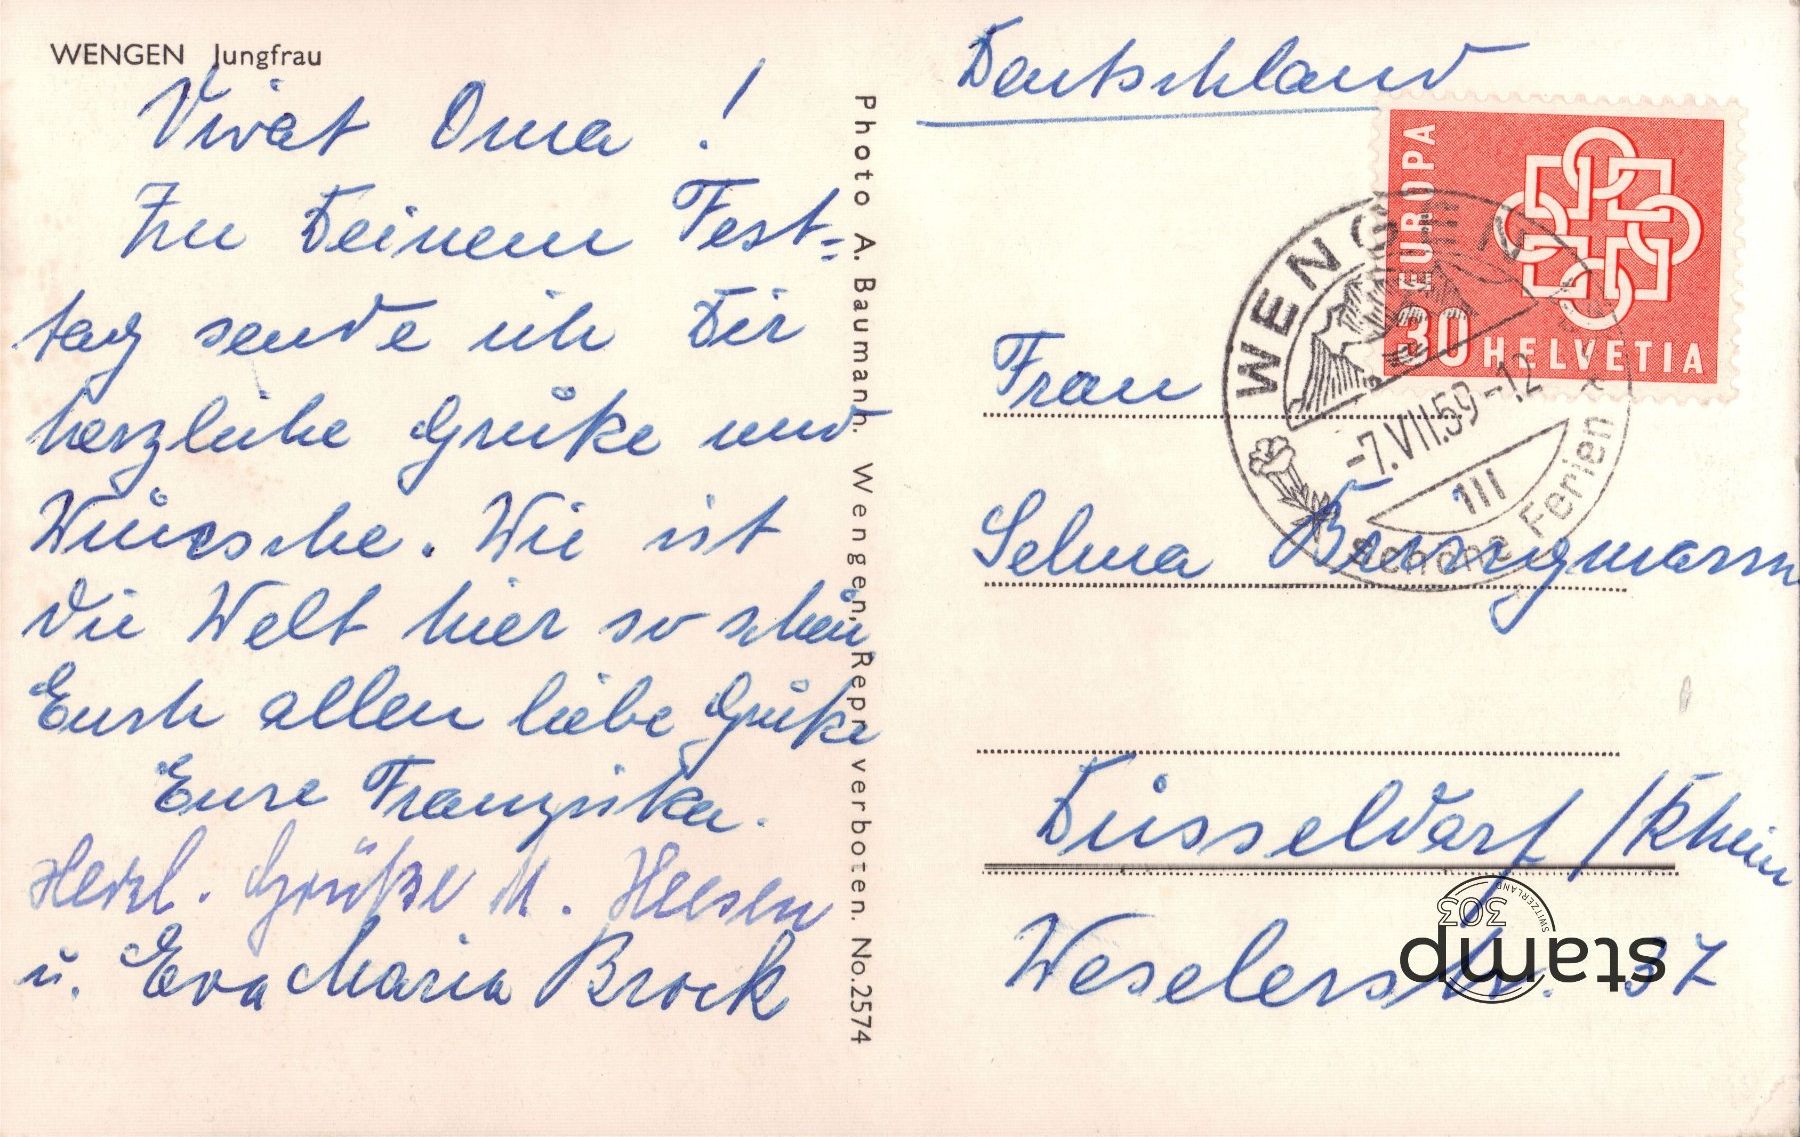 WENGEN Jungfrau
Vivat Oma!
Zu Deinem Fest-
tag sende ich Dir
herzliche Grüße und
Wünsche. Wie ist
die Welt hier so schön
Euch allen liebe Grüße
Eure Franziska.
Herzl. Grüße M. Heesen
u. Eva Maria Brock
Photo A. Baumann. Wengen. Repr. verboten. No. 2574
Deutschland
EUROPA
30 HELVETIA
WENGEN
-7.VII.59-12
III
Schöne Ferien
Frau
Selma
Düsseldorf / Rhein
Weselerstr. 37
stamp
303
SWITZERLAND